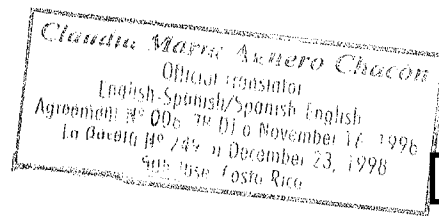 Claudia María Agüero Chacón
Official Translator
English-Spanish/Spanish English
Agreement Nº 006 DJ o November 16 1996
La Gaceta Nº 249 December 23, 1998
San Jose Costa Rica